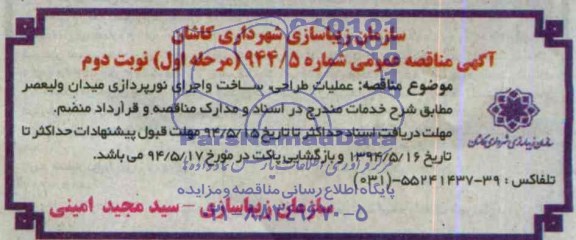 سازمان زیباسازی شهرداری کاشان
آگهی مناقصه عمومی شماره ۹۴۴/۵ (مرحله اول) نوبت دوم
موضوع مناقصه: عملیات طراحی، ساخت واجرای نورپردازی میدان ولیعصر
مطابق شرح خدمات مندرج در اسناد و مدارک مناقصه و قرارداد منضم.
مهلت دریافت اسناد حداکثر تا تاریخ ۹۴/۵/۱۵ مهلت قبول پیشنهادات حداکثر تا
تاریخ ۱۳۹۴/۵/۱۶ و بازگشایی پاکت در مورخ ۹۴/۵/۱۷ می باشد.
تلفاکس : ۳۹-۵۵۲۴۱۴۳۷-(۰۳۱)
سازمان زیباسازی – سید مجید امینی
سازمان زیباسازی شهرداری کاشان
ParsNamadData
پایگاه اطلاع رسانی مناقصه و مزایده